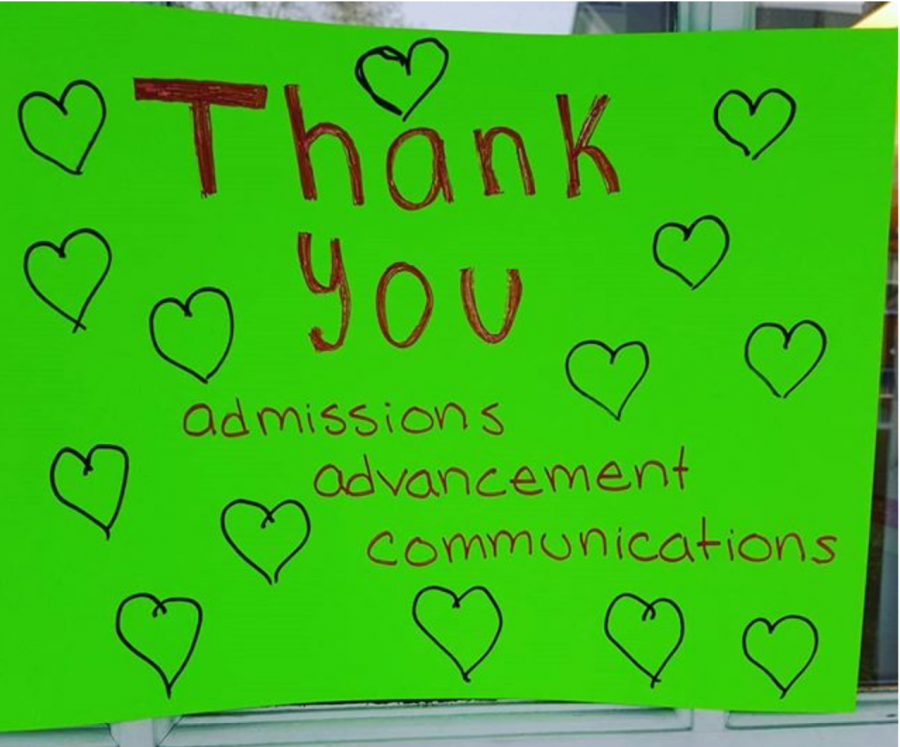 Thank
you
admissions
advancement
communications